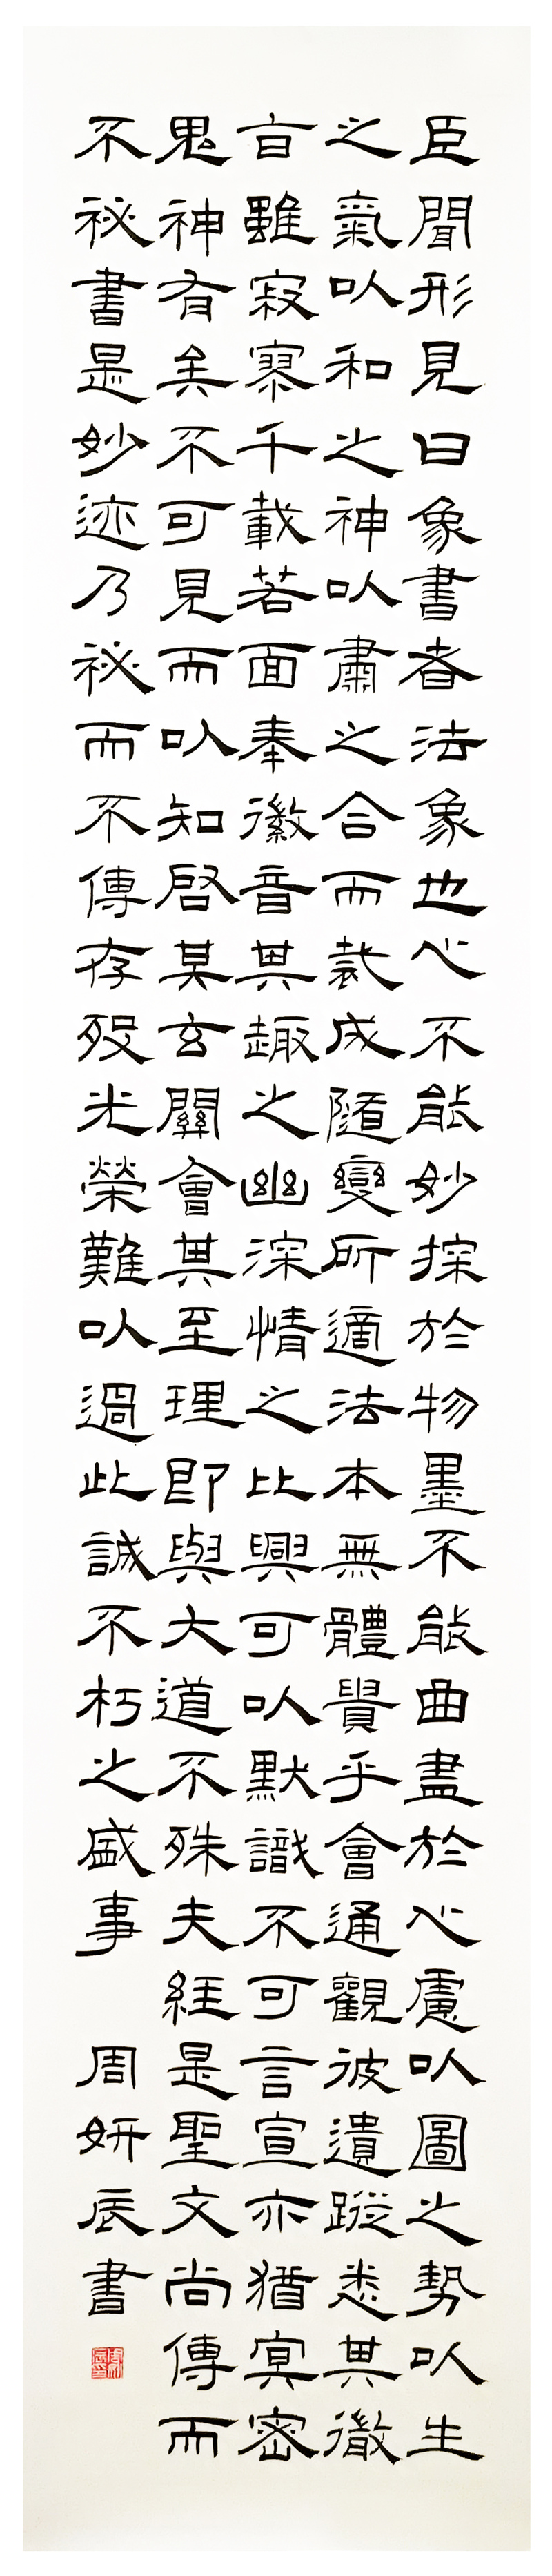 臣聞形見曰象書者法象也心不能妙探於物墨不能曲盡於心慮以圖之勢以生
之氣以和之神以肅之合而裁成隨變所適法本無體貴乎會通觀彼遺蹤悉其微
旨雖寂寥千載若面奉徽音其趣之幽深情之比興可以默識不可言宣亦猶冥密
鬼神有矣不可見而以知啓其玄關會其至理即與大道不殊夫經是聖文尚傳而
不祕書是妙迹乃祕而不傳存歿光榮難以過此誠不朽之盛事 周妍辰書